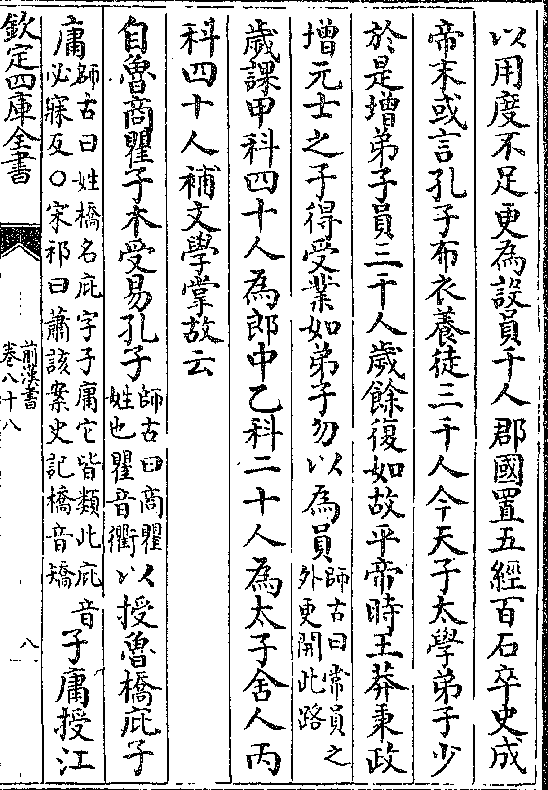 以用度不足更為設員千人郡國置五經百石卒史成
帝末或言孔子布衣養徒三千人今天子太學弟子少
於是增弟子員三千人歲餘復如故平帝時王莽秉政
增元士之子得受業如弟子勿以為員師古曰常員之外更開此路
歲課甲科四十人為郎中乙科二十人為太子舍人丙
科四十人補文學掌故云
自魯商瞿子木受易孔子師古曰商瞿姓也瞿音衢以授魯橋庇子
庸師古曰姓橋名庇字子庸它皆類此庇音必寐反○宋祁曰蕭該案史記橋音矯子庸授江
欽定四庫全書
前漢書
卷八十八
八